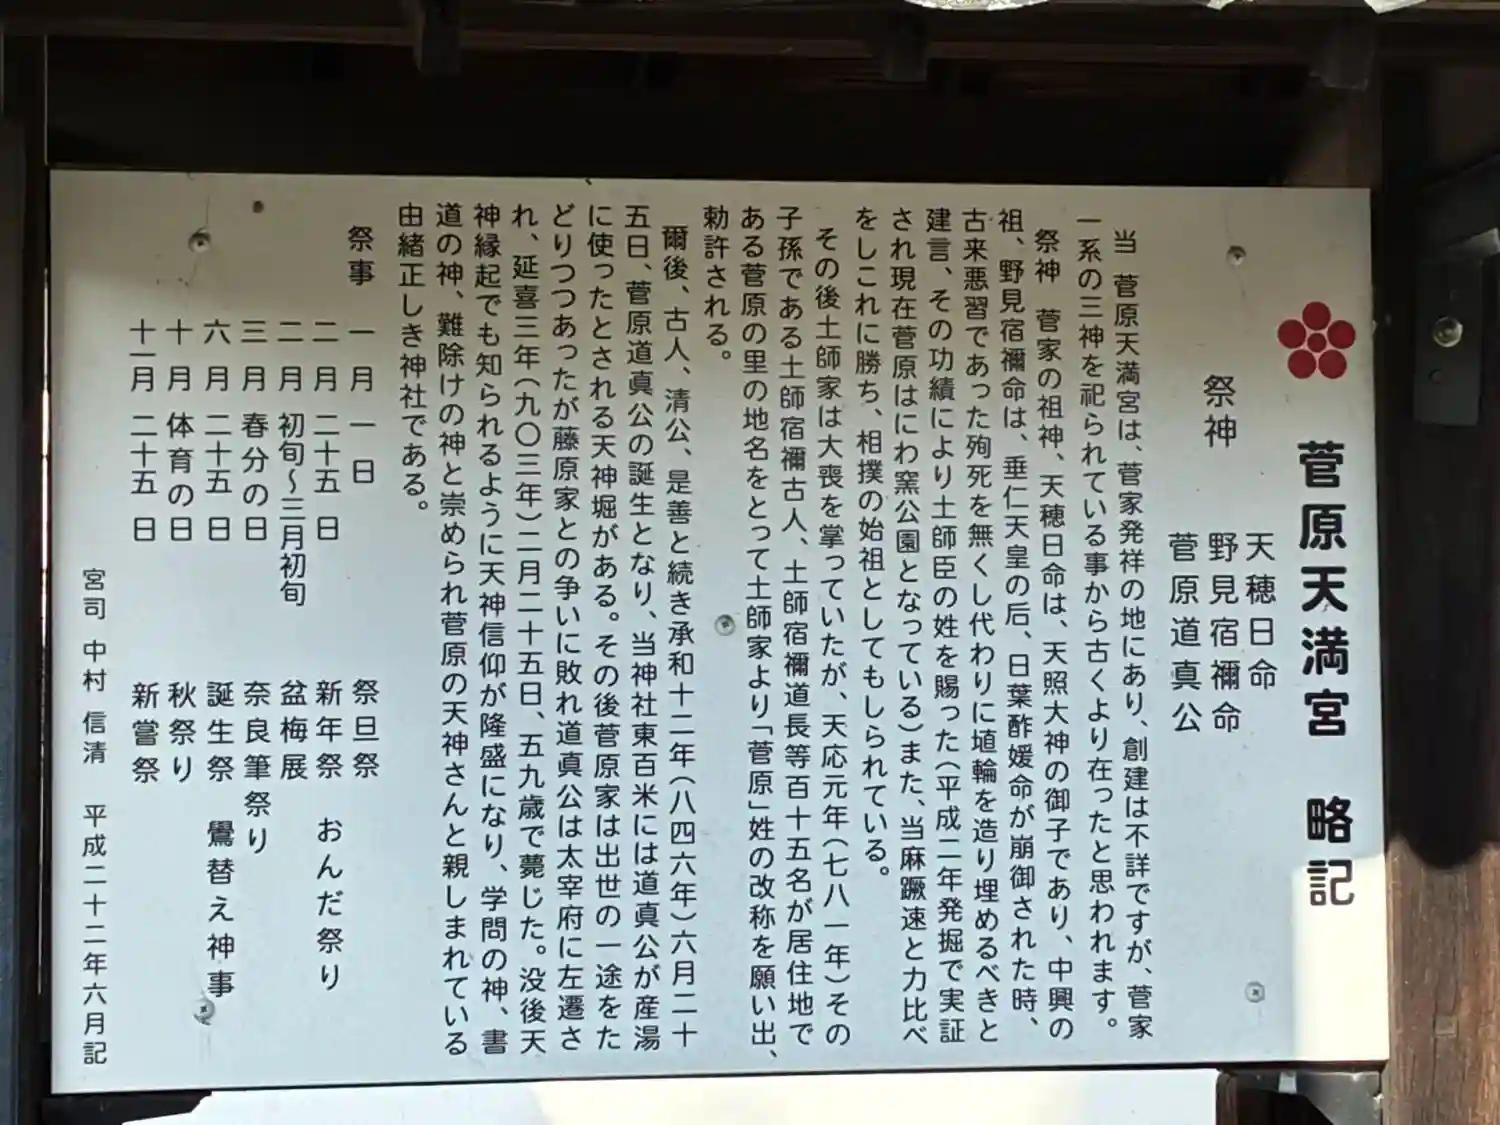 菅原天満宮　略記
祭神
天穂日命
野見宿禰命
菅原道真公
当　菅原天満宮は、菅家発祥の地にあり、創建は不詳ですが、菅家
一系の三神を祀られている事から古くより在ったと思われます。
祭神　菅家の祖神、天穂日命は、天照大神の御子であり、中興の
祖、野見宿禰命は、垂仁天皇の后、日葉酢媛命が崩御された時、
古来悪習であった殉死を無くし代わりに埴輪を造り埋めるべきと
建言、その功績により土師臣の姓を賜った(平成二年発掘で実証
され現在菅原はにわ窯公園となっている)また、当麻蹶速と力比べ
をしこれに勝ち、相撲の始祖としてもしられている。
その後土師家は大喪を掌っていたが、天応元年(七八一年)その
子孫である土師宿禰古人、土師宿禰道長等百十五名が居住地で
ある菅原の里の地名をとって土師家より「菅原」姓の改称を願い出、
勅許される。
爾後、古人、清公、是善と続き承和十二年(八四六年)六月二十
五日、菅原道真公の誕生となり、当神社東百米には道真公が産湯
に使ったとされる天神堀がある。その後菅原家は出世の一途をた
どりつつあったが藤原家との争いに敗れ道真公は太宰府に左遷さ
れ、延喜三年(九〇三年)二月二十五日、五九歳で薨じた。没後天
神縁起でも知られるように天神信仰が隆盛になり、学問の神、書
道の神、難除けの神と崇められ菅原の天神さんと親しまれている
由緒正しき神社である。
祭事　一月　一日　祭旦祭
二月　二十五日　新年祭　おんだ祭り
二月　初旬〜三月初旬　盆梅展
三月　春分の日　奈良筆祭り
六月　二十五日　誕生祭　鷽替え神事
十月　体育の日　秋祭り
十一月　二十五日　新嘗祭
宮司　中村　信清　平成二十二年六月記